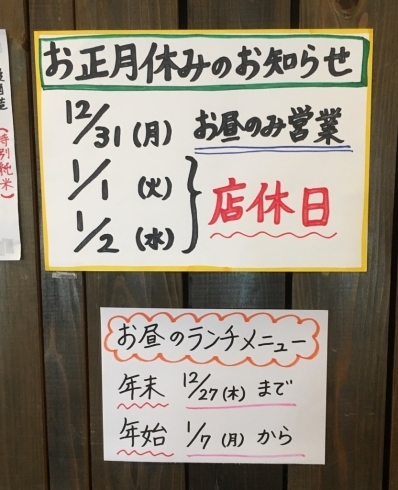 お正月休みのお知らせ
12/31(月) お昼のみ営業
1/1 (火)
1/2 (水)
店休日
お昼のランチメニュー
年末 12/27(木) まで
年始 1/7 (月) から
(特別純米)